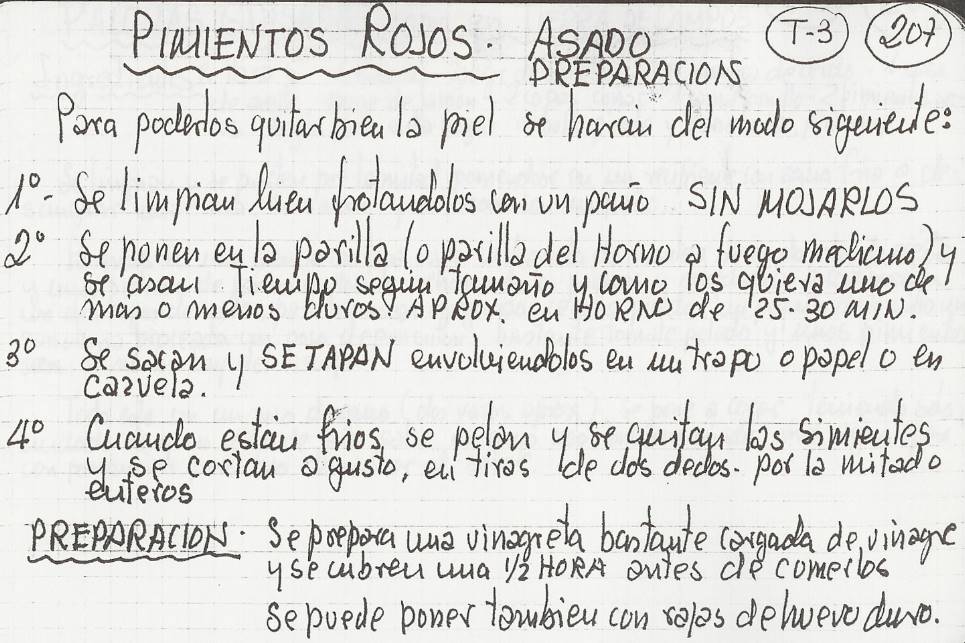 PIMIENTOS ROJOS. ASADO T-3 207
PREPARACION
Para poderlos quitar bien la piel se haran del modo sigeuiente:
1º- Se limpian bien frotandolos con un paño SIN MOJARLOS
2º Se ponen en la parilla (o parilla del Horno a fuego mediano) y
se asan Tiempo según Tamaño y como los quiera uno de
mas o menos duros. APROX. en HORNO de 25-30 MIN.
3º Se sacan y SE TAPAN envolviendolos en un trapo o papel o en
cazuela.
4º Cuando estan frios, se pelan y se quitan las simientes
y se cortan a gusto, en Tiras de dos dedos. por la mitad o
enteros
PREPARACION. Se prepara una vinagreta bastante cargada de vinagre
y se cubren una 1/2 HORA antes de comerlos
Se puede poner tambien con rajas de huevo duro.